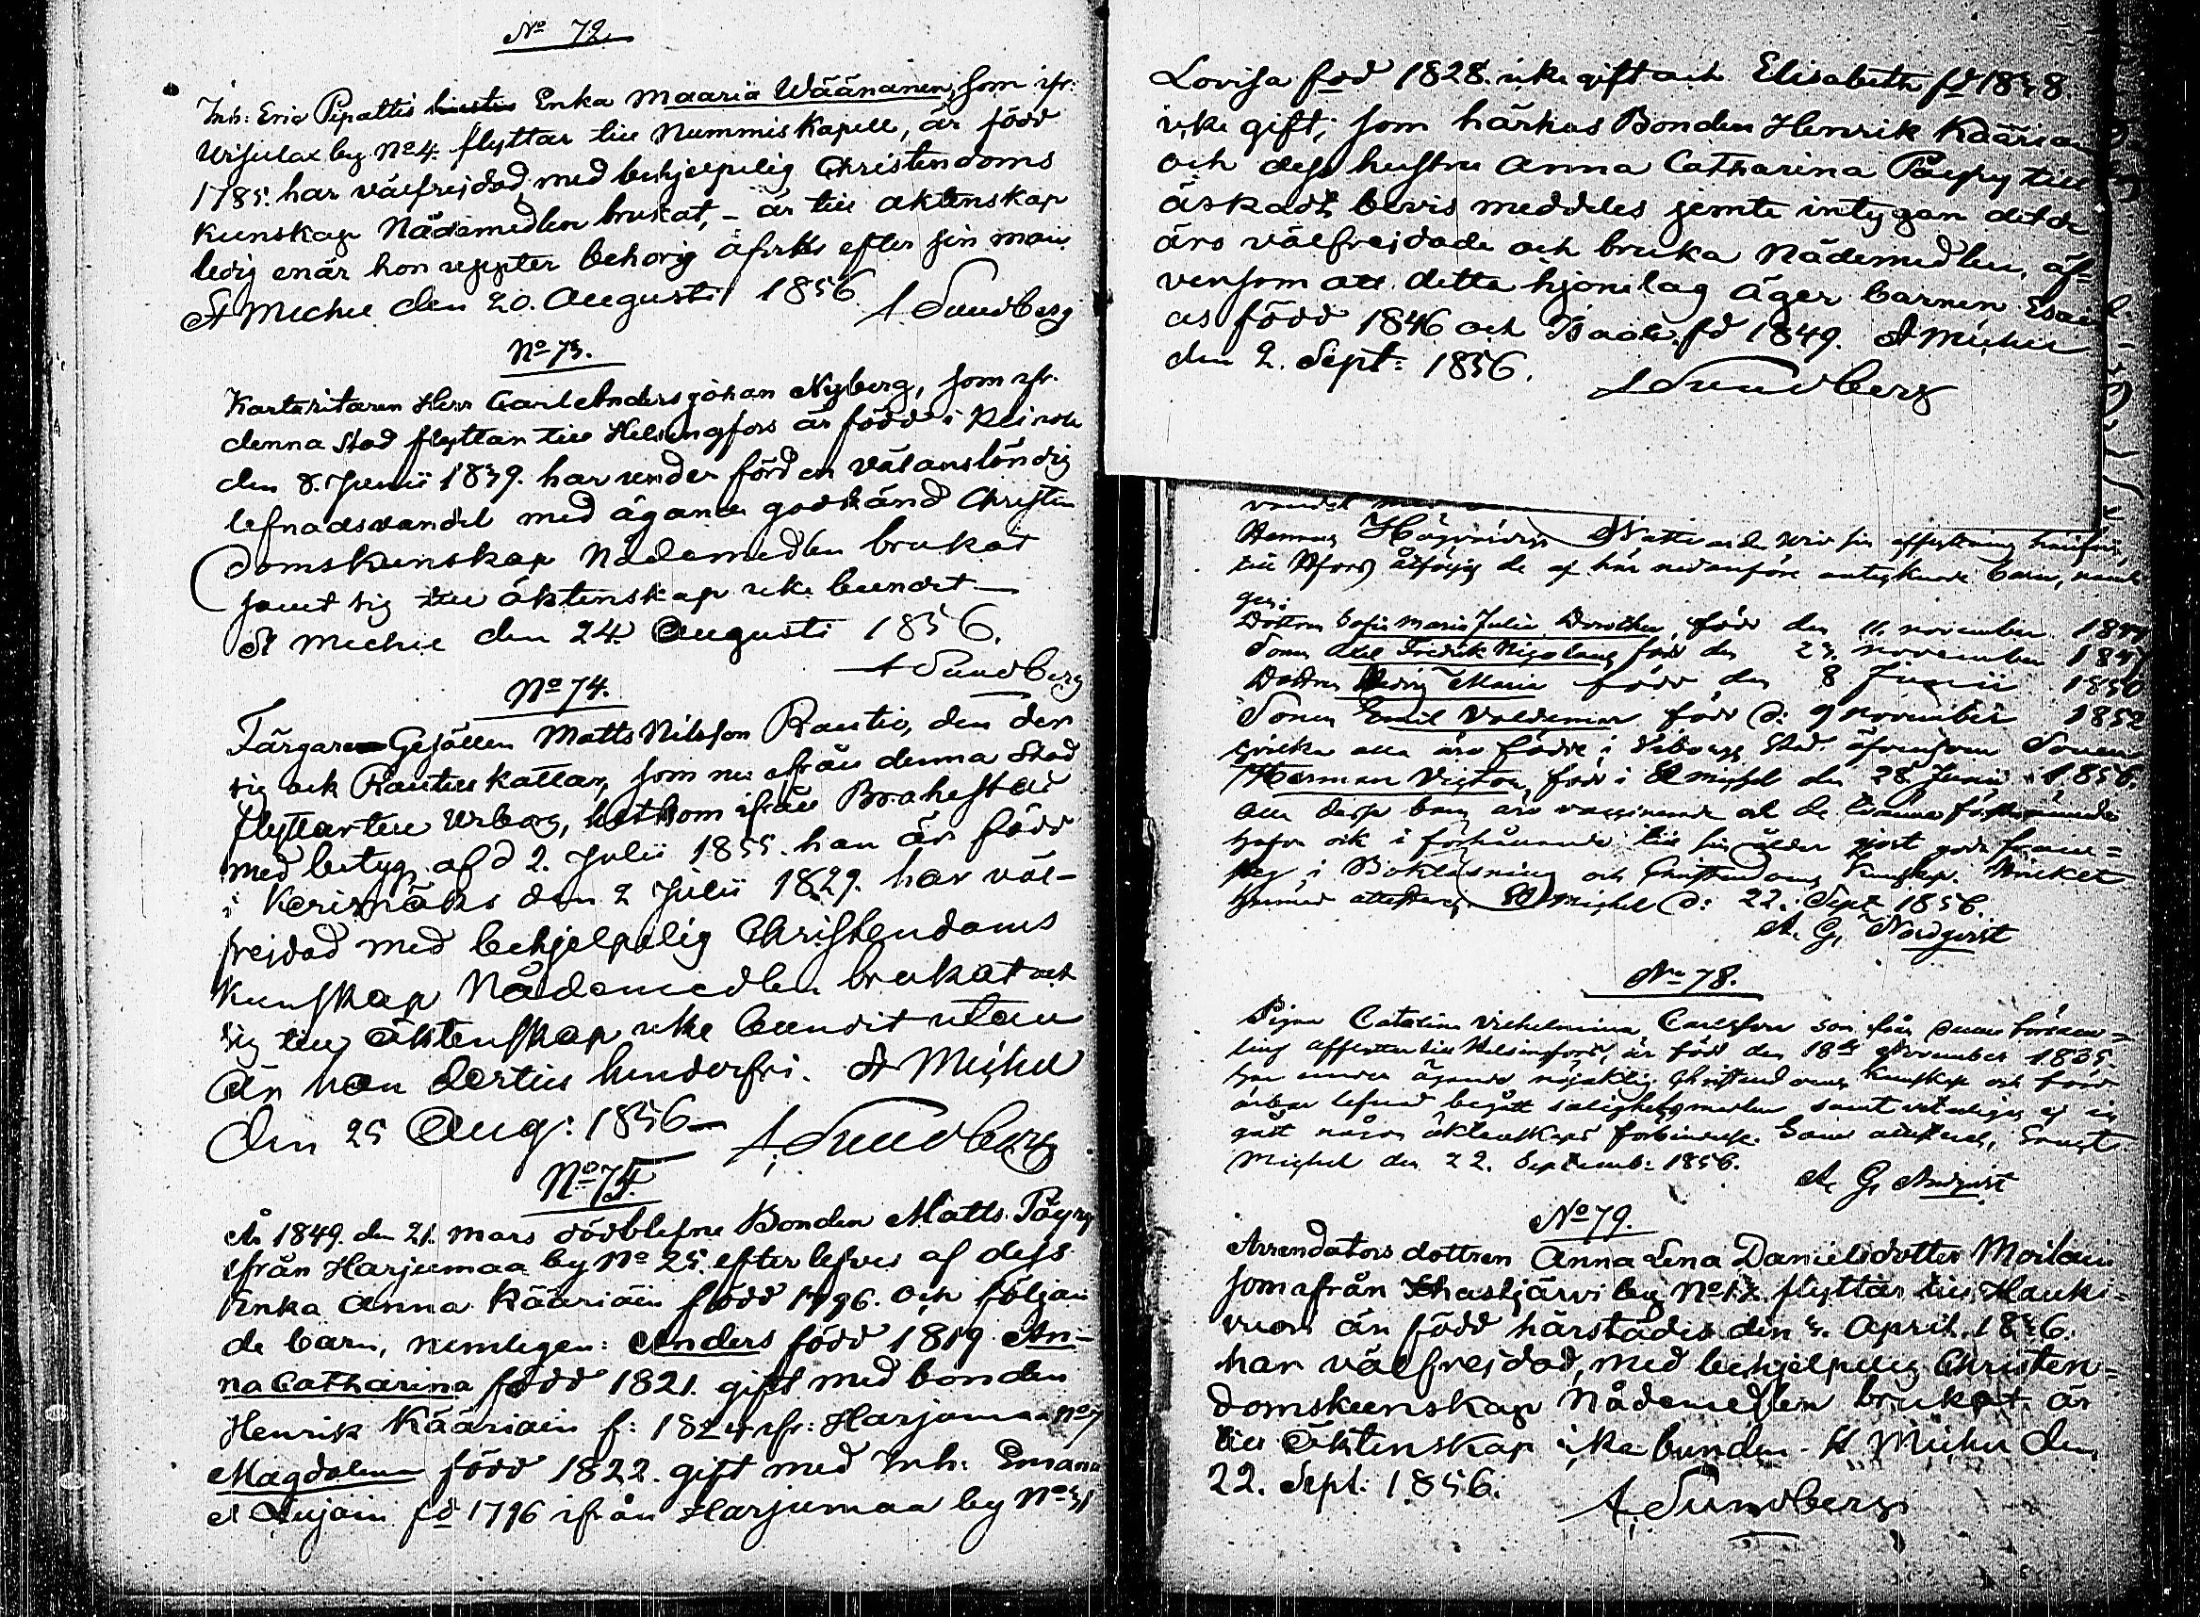 No 72.
Inh: Eric Pipattis Enka Maaria Wäänänen, som ifr:
by No 4. flyttar till Nummis Kapell, är född
1785. har välfrejdad med behjelpelig Christendoms
kunskap Nådemedlen brukat, – är till äktenskap
ledig enär hon efter sin man
St Michel den 20. Augusti 1856 A Sundberg
No 73.
Herr Carl Anders Johan Nyberg, som ifr.
denna Stad flyttar till Helsingfors är född i
den 8. Junii 1839. har under förd en välanständig
lefnadsvandel med ägande godkänd Christen
domskunskap Nådemedlen brukat
samt sig till äktenskap icke bundit –
St Michel den 24. Augusti 1856.
A Sundberg
No 74.
Färgare Gesällen Matts Nilsson Rautio, den der
sig ock kallar, som nu ifrån denna Stad
flyttar till Wiborg, hitkom ifrån Brahestad
med betyg af d 2. Julii 1855. han är född
i Kerimäki den 2 Julii 1829. har väl-
frejdad med behjelpelig Christendoms
kunskap Nådemedlen brukat och
sig till äktenskap icke bundit utan
är han dertill hinderfri. St Michel
den 25 Aug: 1856 – A. Sundberg
No 75.
År 1849. den 21. Mars dödblefne Bonden Matts Päyry
ifrån Harjumaa by No 25. efterlefves af dess
Enka Anna Kääriäin född 1796. och följan
de barn, nemligen: Anders född 1819 An-
na Catharina född 1821. gift med bonden
Henrik Kääriäin f: 1824 ifr: Harjumaa No 7
Magdalena född 1822. gift med Inh. Emanu
el fd 1796 ifrån Harjumaa by No 31
Lovisa född 1828. icke gift och Elisabeth fd 1838.
icke gift; som härhos Bonden Henrik Kääriäin
och dess hustru Anna Catharina Päyry till
äskadt bevis meddeles jemte intygan det de
äro välfrejdade och bruka Nådemedlen, äf-
vensom att detta hjonelag äger barnen Esai
as född 1846 och Isaak fd 1849. St Michel
den 2. Sept: 1856.
A Sundberg
till åtfölja de af här nedanföre antecknade barn, neml
gen:
Dottren Sofie Maria Julia Dorothea, född den 11. november
Sonen Axel Fredrik född den 23. november 1847
Dottren Maria född den 8 Junii 1850
Sonen Emil Valdemar född d: 9 november 1852
hvilka alla äro födde i Viborgs Stad. äfvensom Sonen
Herman Victor, född i St Michel den 28 Junii 1856.
alla dessa barn äro vaccinerade och de
hafva ock i förhållande till sin ålder gjort goda fram=
steg i Bokläsning och Christendoms kunskap. Hvilket
härmed attesteras. St Michel d: 22. Sept 1856.
A. G. Nordqvist
No 78.
Pigan Catarina Vilhelmina Carlsson som ifrån denna församl=
ling afflyttar till Helsingfors, är född den 18de November 1835.
har under ägande nöjaktig Christendoms kunskap och förd
ärbar lefnad begått salighetsmedlen samt
gått någon äktenskaps förbindelse. Som attesteras, Sanct
Michel den 22. Septemb: 1856.
A. G. Nordqvist
No 79.
Arrendators dottren Anna Lena Danielsdotter Moilain
som ifrån by No 12. flyttar till Hauki=
vuori är född härstädes den 3. April. 1836.
har välfrejdad, med behjelpelig Christen=
domskunskap Nådemedlen brukat är
till Äktenskap icke bunden – St Michel den
22. Sept: 1856.
A. Sundberg